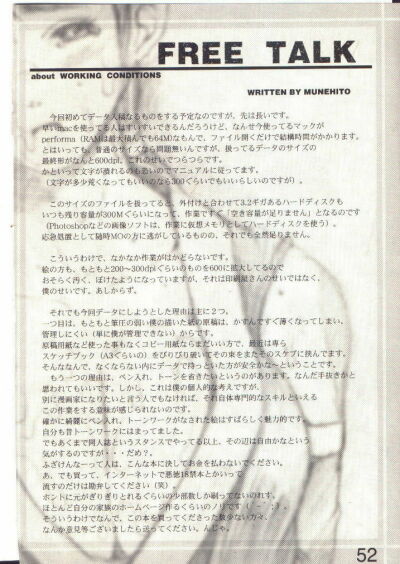 FREE TALK
about WORKING CONDITIONS
WRITTEN BY MUNEHITO
今回初めてデータ入稿なるものをする予定なのですが、先は長いです。
早いmacを使ってる人はすいすいできるんだろうけど、なんせ今使ってるマックが
performa（RAMは最大積んでも64M)なもんで、ファイル開くだけで結構時間がかかります。
とはいっても、普通のサイズなら問題無いんですが、扱ってるデータのサイズの
最終形がなんと600dpi。これのせいでつらつらです。
かといって文字が潰れるのも恐いのでマニュアルに従ってます。
（文字が多少荒くなってもいいのなら300ぐらいでもいいらしいのですが）。
このサイズのファイルを扱ってると、外付けと合わせて3.2ギガあるハードディスクも
いつも残り容量が300Mぐらいになって、作業中です「空き容量が足りません」となるのです
（Photoshopなどの画像ソフトは、作業に仮想メモリとしてハードディスクを使う）。
応急処置として随時MOの方に逃がしているものの、それでも全然足りません。
こういうわけで、なかなか作業がはかどらないです。
絵の方も、もともと200～300dpiぐらいのものを600に拡大してるので
おそらく汚く、ぼけたようになっていますが、それは印刷屋さんのせいではなく、
僕のせいです。あしからず。
それでも今回データにしようとした理由は主に２つ。
一つ目は、もともと筆圧の弱い僕の描いた紙の原稿は、かすんですぐ薄くなってしまい、
管理しにくい（単に僕が管理できない）からです。
原稿用紙など使った事もなくコピー用紙ならまだいい方で、最近は専ら
スケッチブック（A3ぐらいの）をびりびり破いてその束をまたそのスケブに挟んでます。
そんななんで、なくならない内にデータで持っといた方が安全かな～ということです。
もう一つの理由は、ペン入れ、トーンを省きたいというのがあります。なんだ手抜きかと
思われてもいいです。しかし、これは僕の個人的な考えですが、
別に漫画家になりたいと言う人でもなければ、それ自体専門的なスキルといえる
この作業をする意味が感じられないのです。
確かに綺麗にペン入れ、トーンワークがなされた絵はすばらしく魅力的です。
自分も昔トーンワークにはまってました。
でもあくまで同人誌というスタンスでやってる以上、その辺は自由かなという
気がするのですが・・・だめ？。
ふざけんなーって人は、こんな本に決してお金を払わないでください。
あ、でも買って、インターネットで悪徳18禁本とかいって
流すのだけは勘弁してください（笑）
ホントに元がぎりぎりとれるぐらいの少部数しか刷ってないのれす。
ほとんど自分の家族のホームページ作るくらいのノリです
そういうわけでなんで、この本を買ってくださった数少ない方々、
なんか意見等ございましたら送ってください。んじゃ。
52